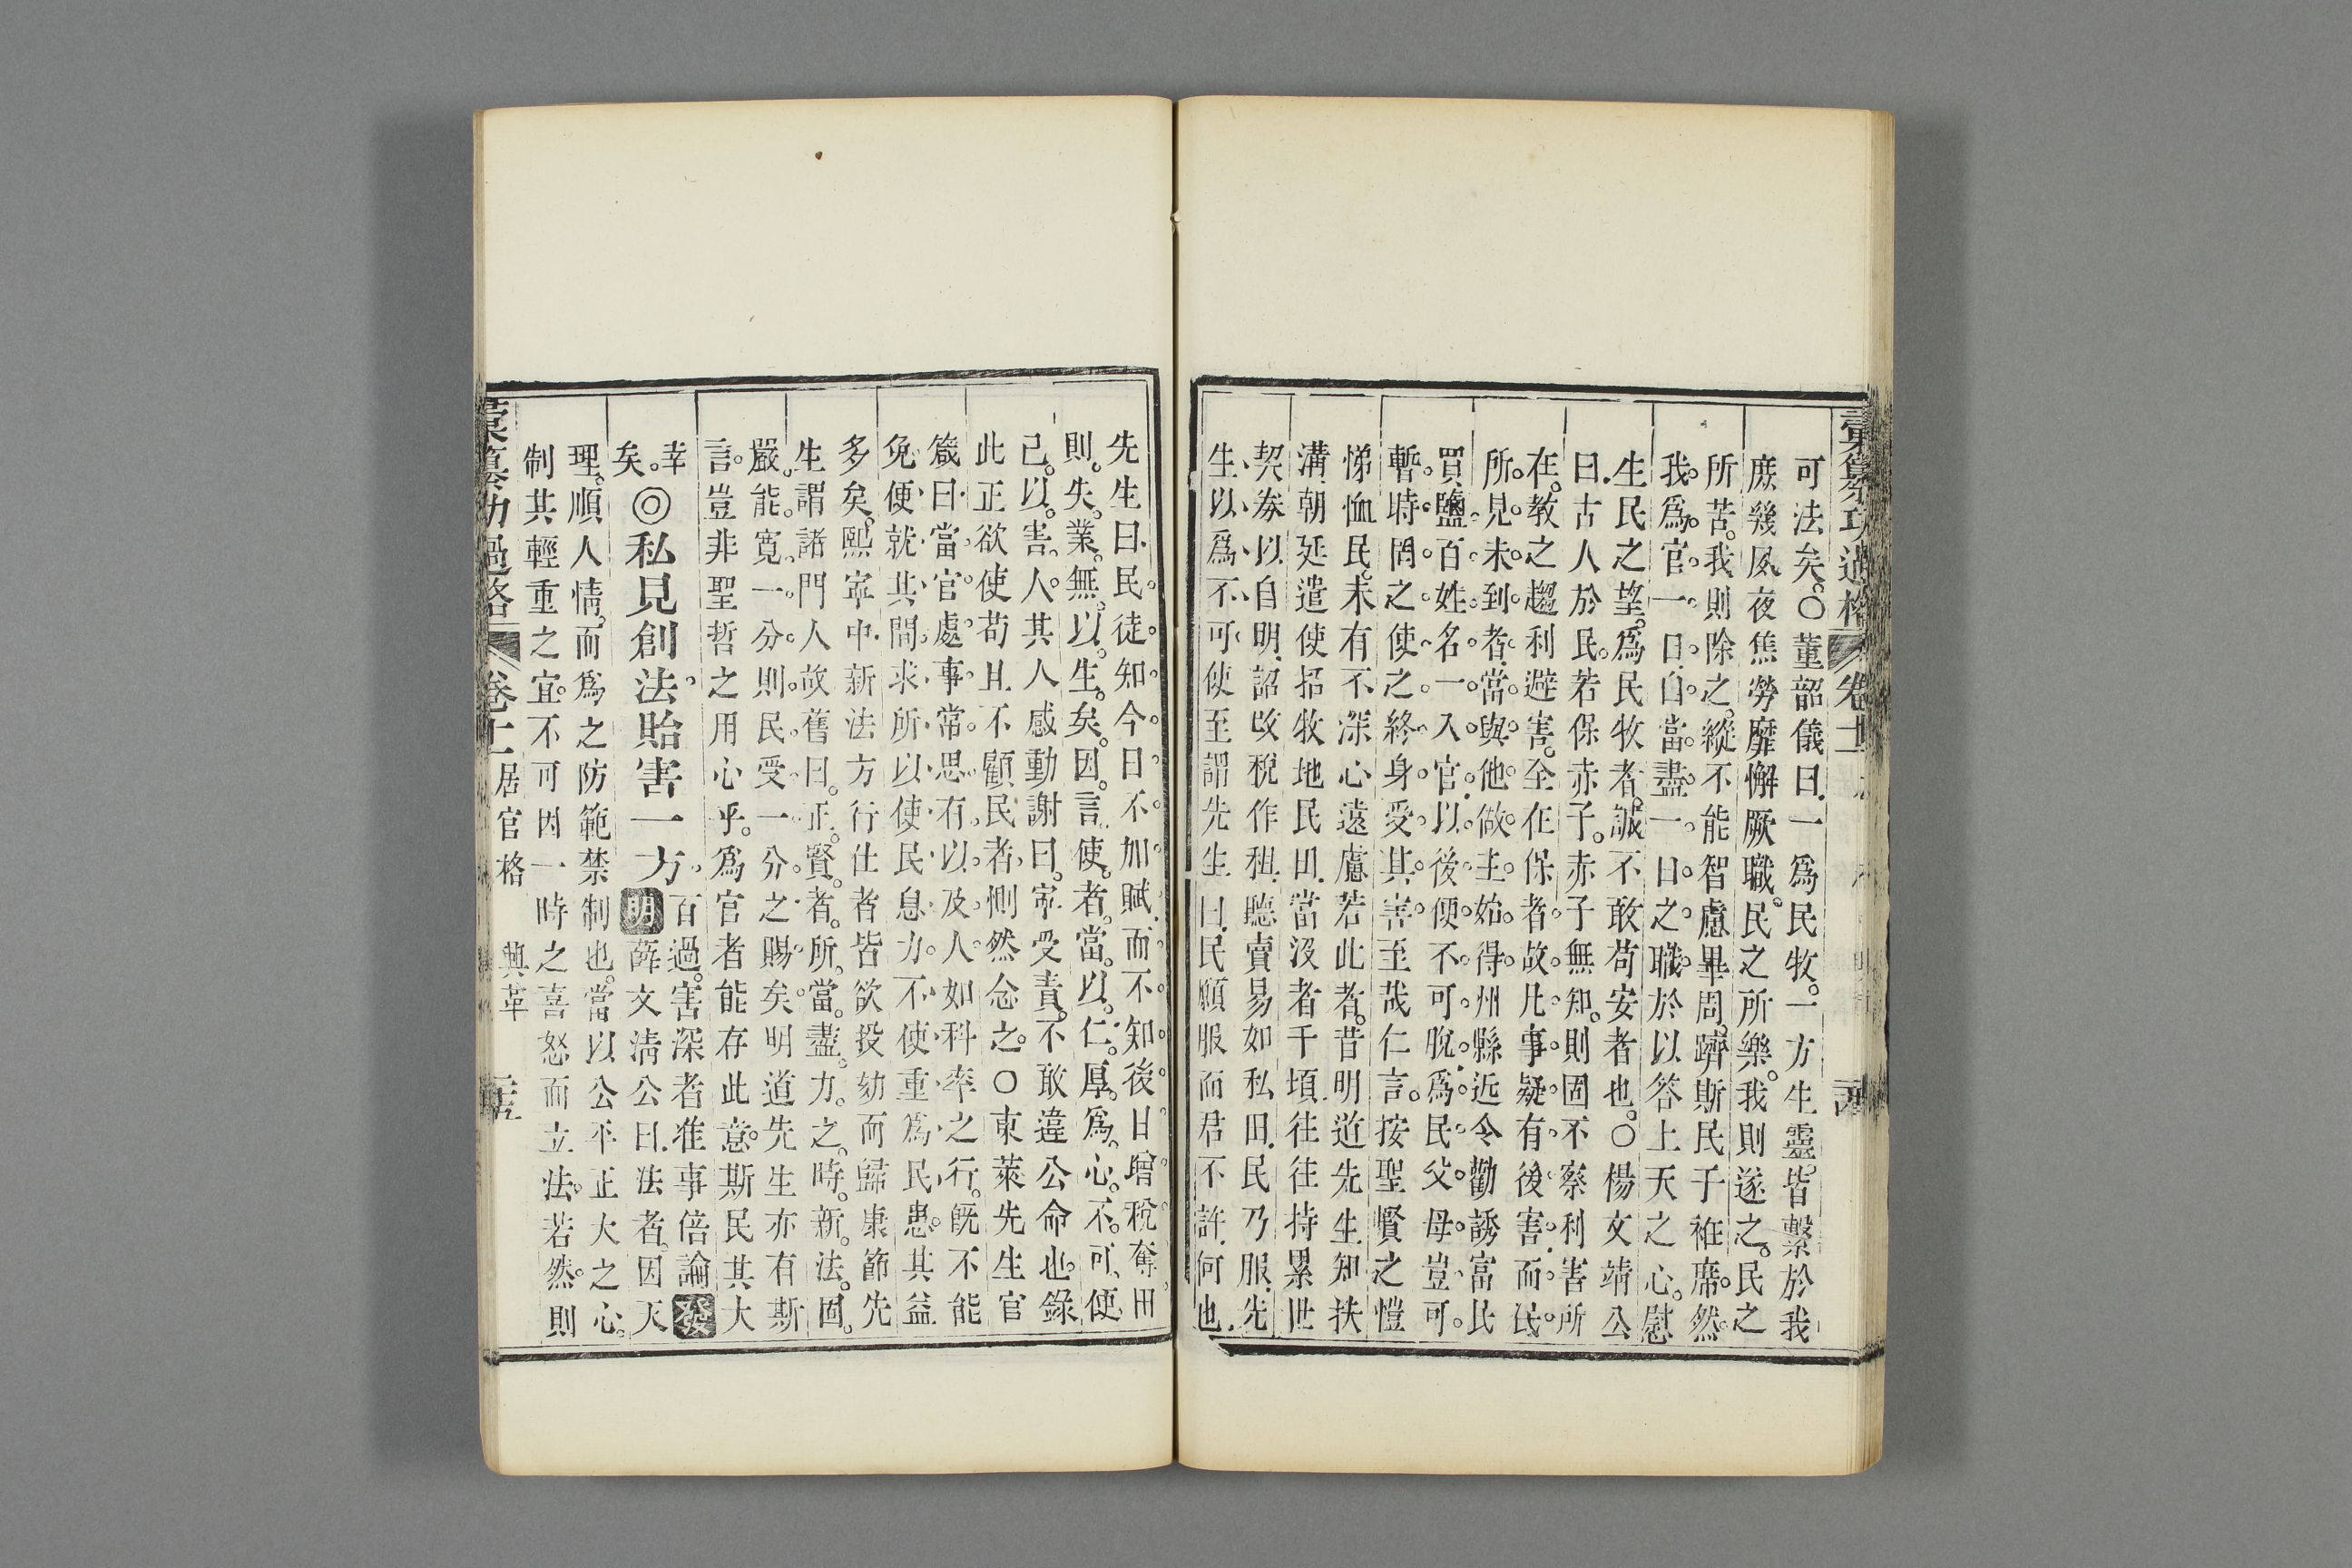 彙纂功過格
可法矣。○董韶儀曰.一爲民牧。一方生靈。皆繫於我
庶幾夙夜焦勞靡懈厥職。民之所樂。我則遂之。民之
所苦。我則除之。縱不能智慮畢周。躋斯民于袵席。然
我爲官一日.自當盡一日之職於以答上天之心。慰
生民之望。爲民牧者。誠不敢苟安者也。○楊文靖公
曰.古人於民。若保赤子。赤子無知。則固不察利害所
在。教之趨利避害。全在保者。故凡事疑有後害.而民
所見未到者.當與他做主。始得。州縣近令勸誘富民
買鹽.百姓名一入官.以後便不可脫.爲民父母。豈可
暫時罔之.使之終身受其害。至哉仁言。按聖賢之愷
悌恤民。未有不深心遠慮若此者。昔明道先生.知扶
溝.朝廷遣使.括牧地民田.當沒者千頃.往往持累世
契券以自明.詔改稅作租.聽賣易如私田.民乃服.先
生以爲不可.使至謂先生曰.民願服而君不許.何也.
先生曰.民徒知今日不加賦.而不知後日增稅奪田
則失業。無以生矣。因言使者當以仁厚爲心。不可便
己以害人。其人感動謝曰。寧受責。不敢違公命也。錄
此正欲使苟且不顧民者.惻然念之。○東萊先生官
箴曰.當官處事.常思有以及人.如科率之行.既不能
免.便就其間求所以使民息力.不使重爲民患.其益
多矣。熙寧中.新法方行.仕者皆欲投劾而歸.康節先
生謂諸門人故舊曰。正賢者所當盡力之時。新法固
嚴。能寬一分。則民受一分之賜矣。明道先生亦有斯
言。豈非聖哲之用心乎。爲官者能存此意。斯民其大
幸矣。
◎私見創法。貽害一方。百過。害深者准事倍論 發明 薛文清公曰.法者.因天
理。順人情。而爲之防範禁制也。當以公平正大之心。
制其輕重之宜。不可因一時之喜怒而立法。若然。則
彙纂功過格 卷十一 居官格 興革 二十五